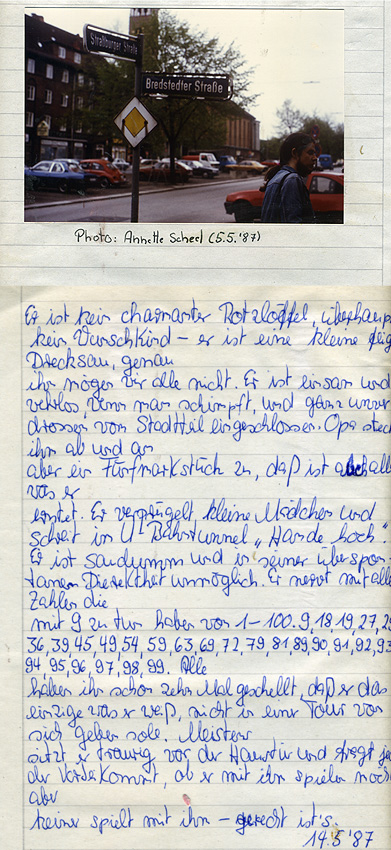 Straßburger Straße
Bredstedter Straße
Photo: Annette Scheel (5.5.'87)
Er ist kein charmanter Rotzlöffel, überhaup
kein Wunschkind – er ist eine kleine
Drecksau, genau
ihn mögen wir alle nicht. Er ist einsam und
wehrlos, wenn man schimpft, und ganz
vom Stadtteil eingeschlossen. Opa steck
ihm ab und an
aber ein Fünfmarkstück zu, daß ist
was er
erntet. Er verprügelt kleine Mädchen und
schreit im U-Bahntunnel „Hände hoch".
Er ist saudumm und in seiner überspon-
tanen Direktheit unmöglich. Er nervt mit alle
Zahlen die
mit 9 zu tun haben von 1–100. 9, 18, 19, 27, 29
36, 39, 45, 49, 54, 59, 63, 69, 72, 79, 81, 89, 90, 91, 92, 93
94, 95, 96, 97, 98, 99. Alle
haben ihn schon zehn Mal, daß er das
einzige was er weiß, nicht in einer Tour von
sich geben solle. Meistens
sitzt er traurig vor der Haustür und fragt je
der vorbeikommt, ob er mit ihm spielen
aber
keiner spielt mit ihm – gerecht ist's.
14.5'87